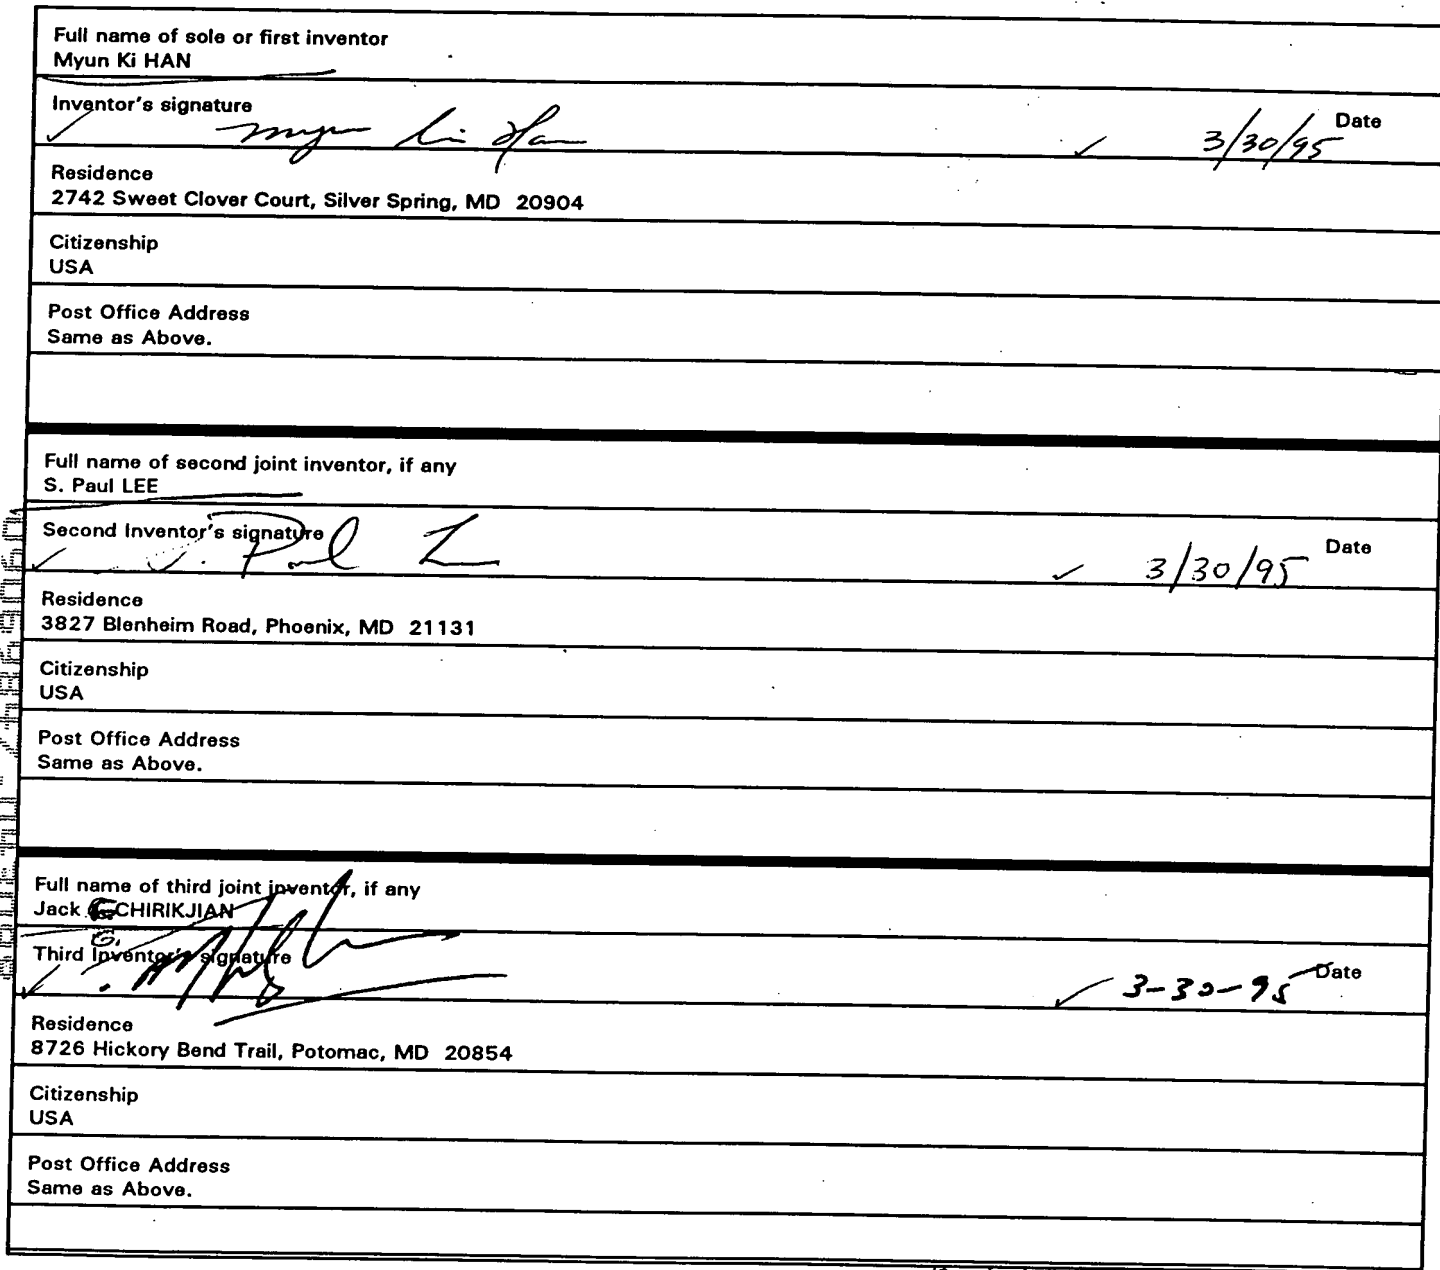 Full name of sole or first inventor
Myun Ki HAN
Inventor's signature
Date
Myun Ki Han
3/30/95
Residence
2742 Sweet Clover Court, Silver Spring, MD 20904
Citizenship
USA
Post Office Address
Same as Above.
Full name of second joint inventor, if any
S. Paul LEE
Second Inventor's signature
Date
S. Paul Lee
3/30/95
Residence
3827 Blenheim Road, Phoenix, MD 21131
Citizenship
USA
Post Office Address
Same as Above.
Full name of third joint inventor, if any
Jack CHIRIKJIAN
G.
Third Inventor's signature
Date
3-30-95
Residence
8726 Hickory Bend Trail, Potomac, MD 20854
Citizenship
USA
Post Office Address
Same as Above.